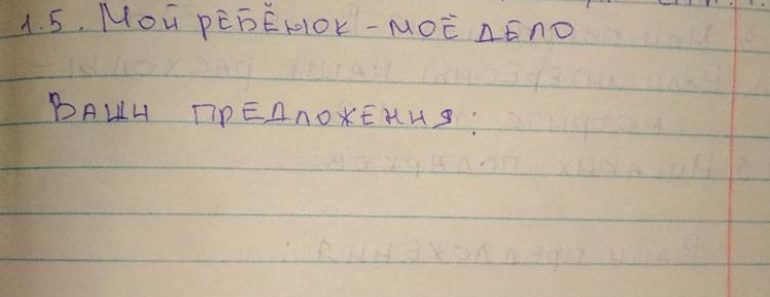 1.5. Мой ребёнок - моё дело
Ваши предложения: